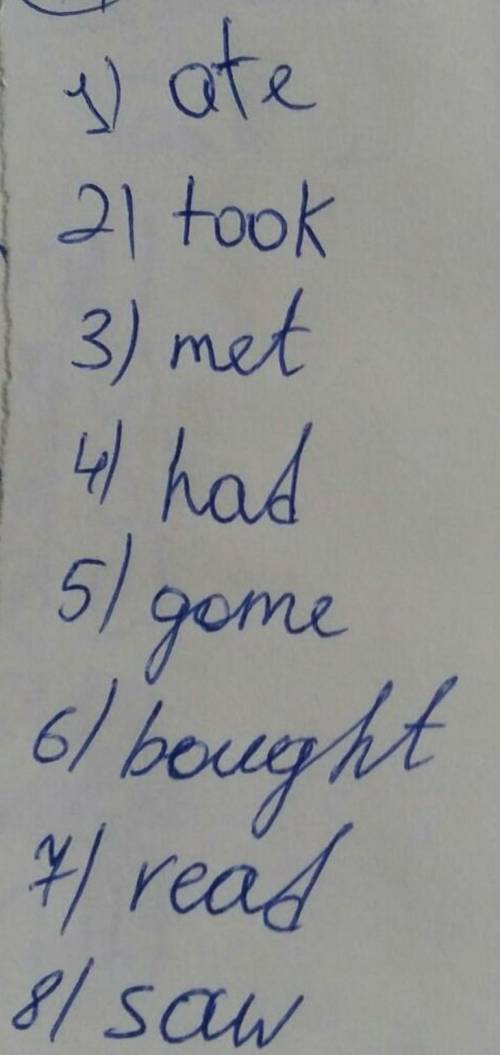 1) ate
2) took
3) met
4) had
5) gome
6) bought
7) read
8) saw